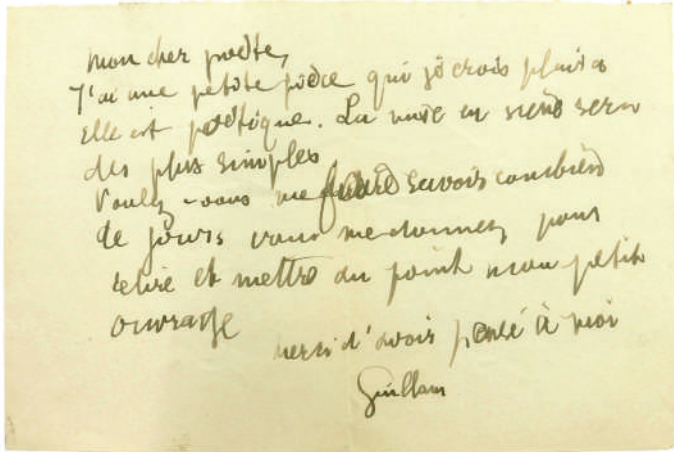 mon cher poète,
J'ai une petite pièce qui je crois plaira
elle est poétique. La mise en scène sera
des plus simples
Voulez-vous me faire savoir combien
de jours vous me donnez pour
relire et mettre au point mon petit
ouvrage
merci d'avoir pensé à moi